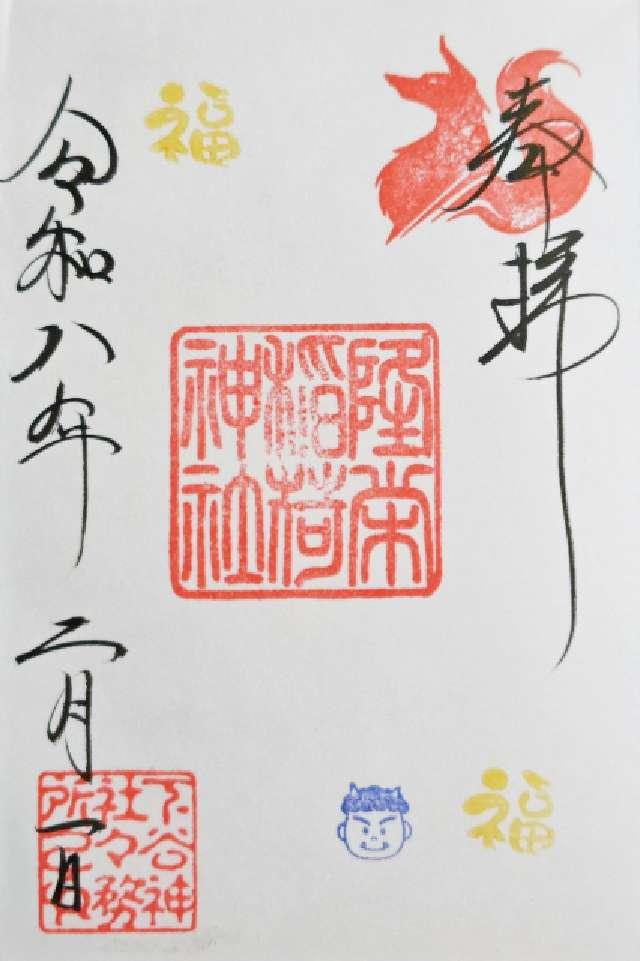 奉拝
福
隆栄
稲荷
神社
令和八年 二月一日
福
下谷神
社々務
所之印